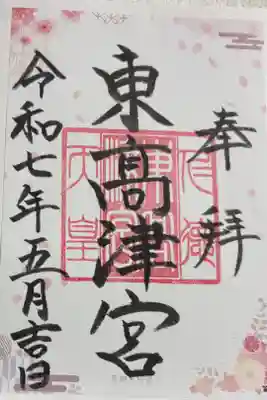 奉拝
東高津宮
令和七年五月吉日